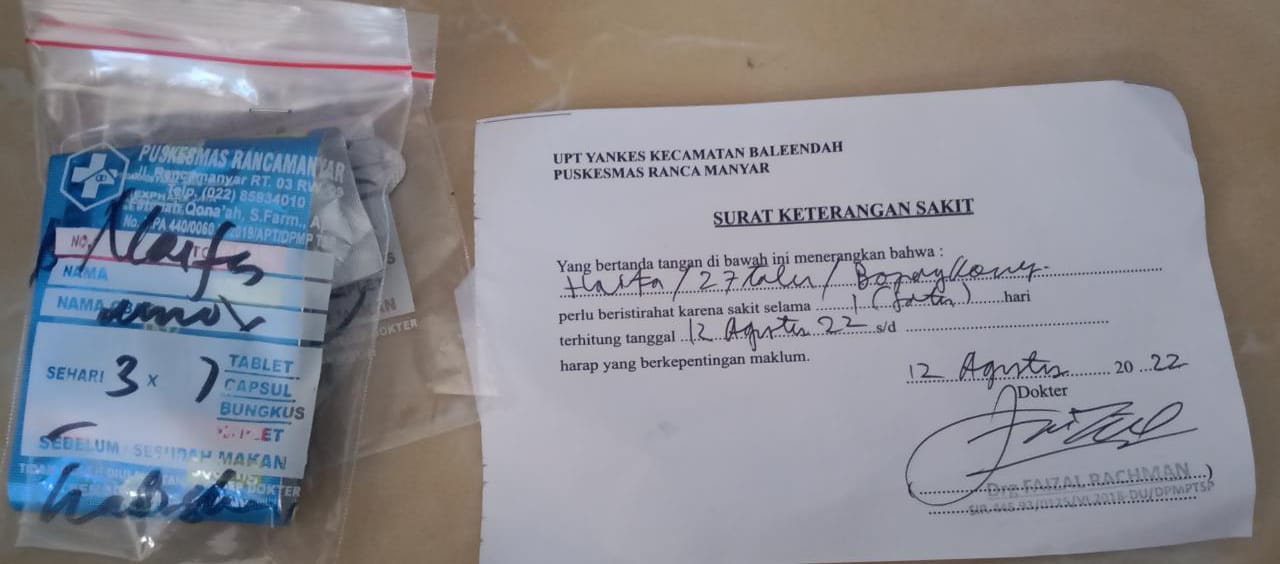 PUSKESMAS RANCAMANYAR
Jl. Rancamanyar RT. 03
Telp. (022) 85934010
Qona'ah, S.Farm., A
No. PA 440/0060 2019/APT/DPMP
NO.
Haifa
NAMA
NAMA
amox
SEHARI 3 x 1
TABLET
CAPSUL
BUNGKUS
SEBELUM SESUDAH MAKAN
DOKTER
UPT YANKES KECAMATAN BALEENDAH
PUSKESMAS RANCA MANYAR
SURAT KETERANGAN SAKIT
Yang bertanda tangan di bawah ini menerangkan bahwa :
Haifa / 27 /
perlu beristirahat karena sakit selama 1 (satu) hari
terhitung tanggal 12 Agustus 22 s/d
harap yang berkepentingan maklum.
12 Agustus 20 22
Dokter
Drg FAIZAL RACHMAN